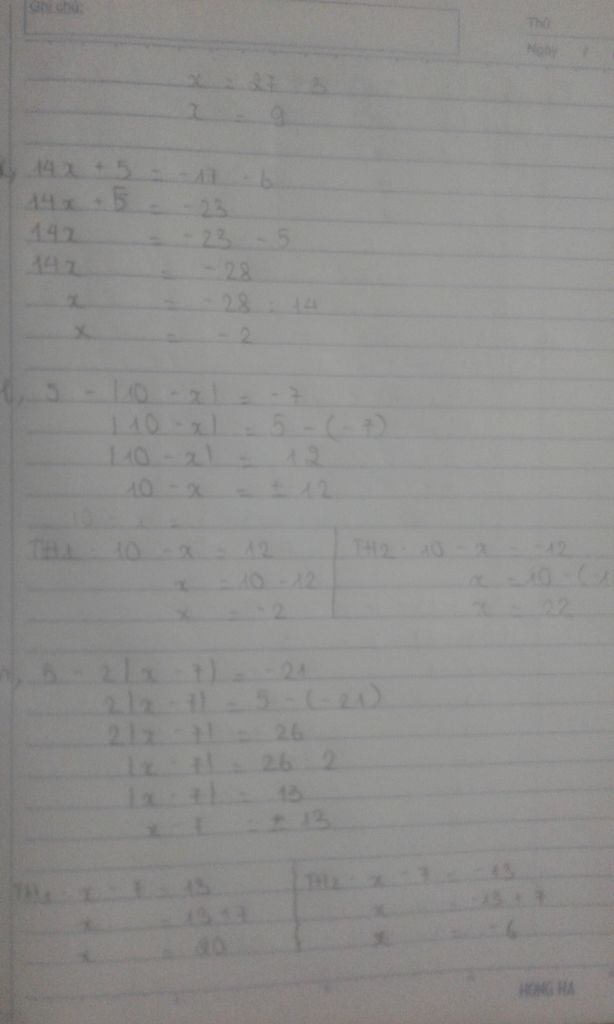 Ghi chú:
Thứ
Ngày /
x = 27 : 3
x = 9
14x + 5 = -17 - 6
14x + 5 = -23
14x = -23 - 5
14x = -28
x = -28 : 14
x = -2
5 - |10 - x| = -7
|10 - x| = 5 - (-7)
|10 - x| = 12
10 - x = ± 12
10 - x =
TH1: 10 - x = 12
x = 10 - 12
x = -2
TH2: 10 - x = -12
x = 10 - (-1
x = 22
5 - 2|x - 7| = -21
2|x - 7| = 5 - (-21)
2|x - 7| = 26
|x - 7| = 26 : 2
|x - 7| = 13
x - 7 = ± 13
TH1: x - 7 = 13
x = 13 + 7
x = 20
TH2: x - 7 = -13
x = -13 + 7
x = -6
HONG HA